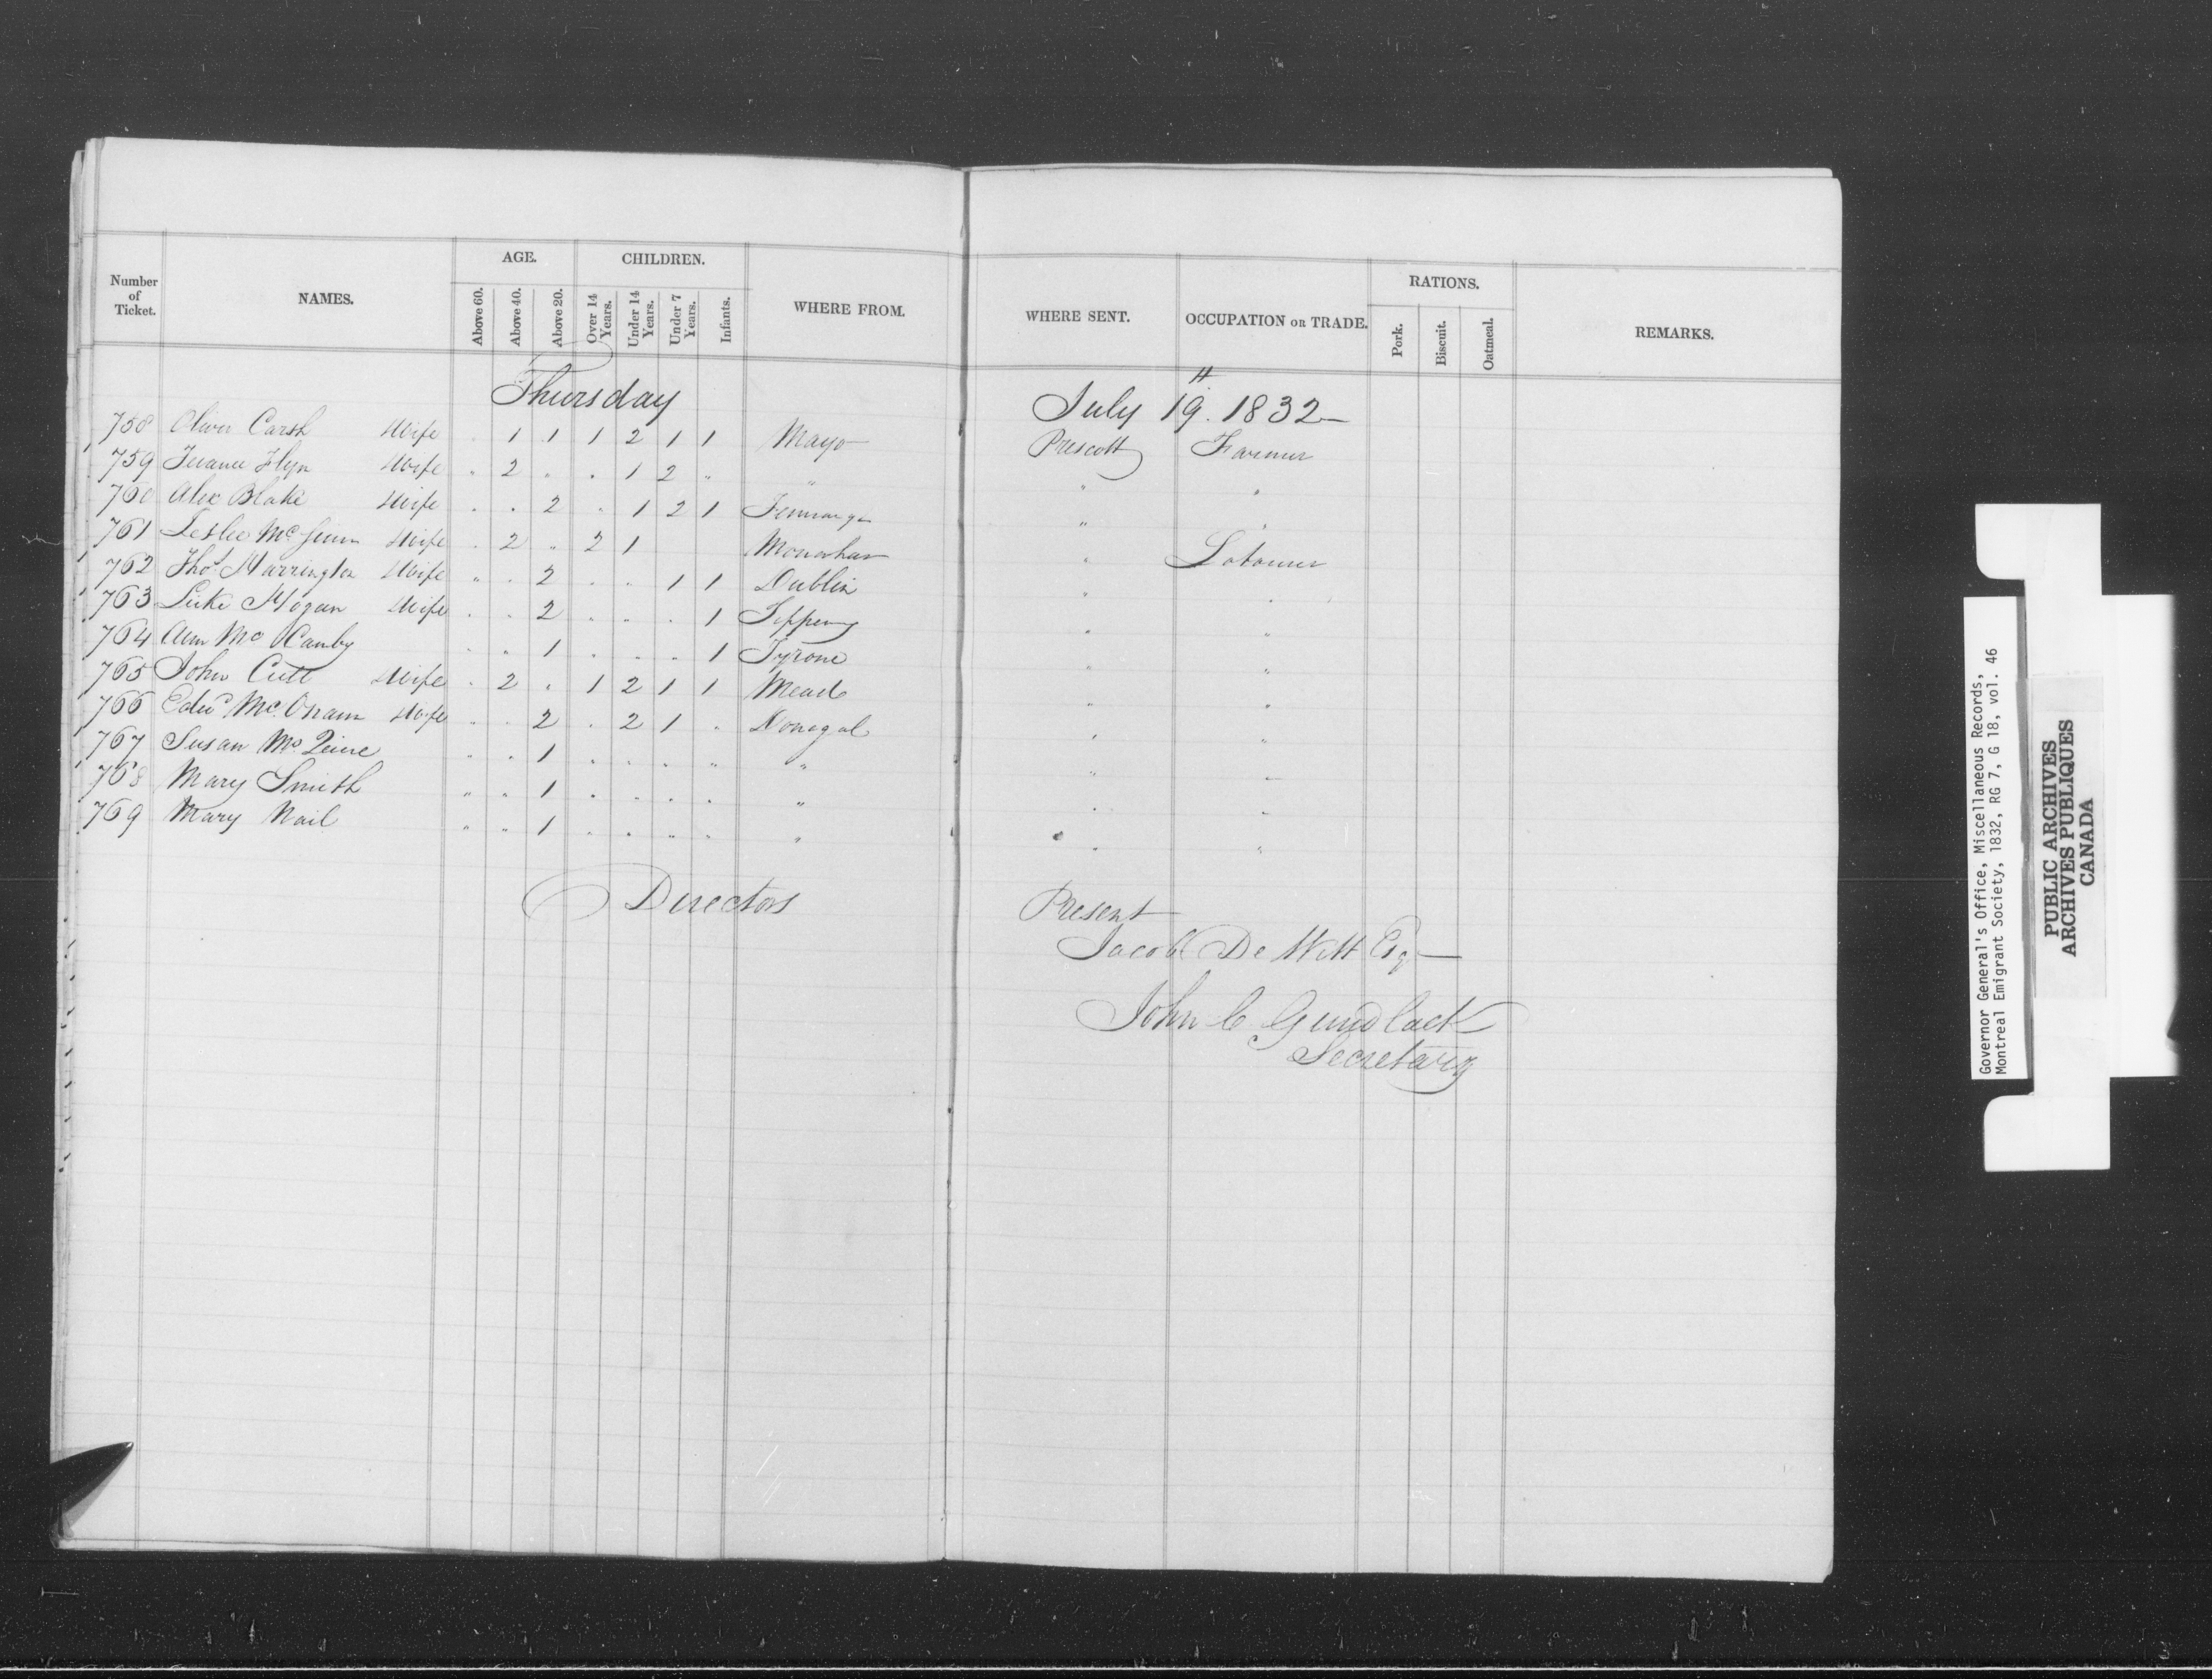 Number of Ticket. NAMES. AGE. Above 60. Above 40. Above 20. CHILDREN. Over 14 Years. Under 14 Years. Under 7 Years. Infants. WHERE FROM. WHERE SENT. OCCUPATION OR TRADE. RATIONS. Pork. Biscuit. Oatmeal. REMARKS.
Thursday July 19th. 1832
758 Oliver Carsh Wife . 1 1 1 2 1 1 Mayo Prescott Farmer
759 Flyn Wife " 2 . . 1 2 " " " "
760 Alex Blake Wife . . 2 . 1 2 1 " "
761 Leslie Mc Wife . 2 " 2 1 Monahan " Labourer
762 Thos. Harrington Wife " . 2 . . 1 1 Dublin " "
763 Luke Hogan Wife . . 2 . . . 1 Tippery " "
764 Ann Mc Canby . " 1 . . . 1 Tyrone " "
765 John Cutt Wife . 2 . 1 2 1 1 Mead " "
766 Edwd Mc Wife " . 2 . 2 1 . Donegal " "
767 Susan Mc " . 1 . . . " " " "
768 Mary Smith " " 1 . . . . " " "
769 Mary Nail " " 1 . . " . " " "
Directors Present
Jacob De Witt Esq
John C Gundlack
Secretary
Governor General's Office, Miscellaneous Records,
Montreal Emigrant Society, 1832, RG 7, G 18, vol. 46
PUBLIC ARCHIVES
ARCHIVES PUBLIQUES
CANADA